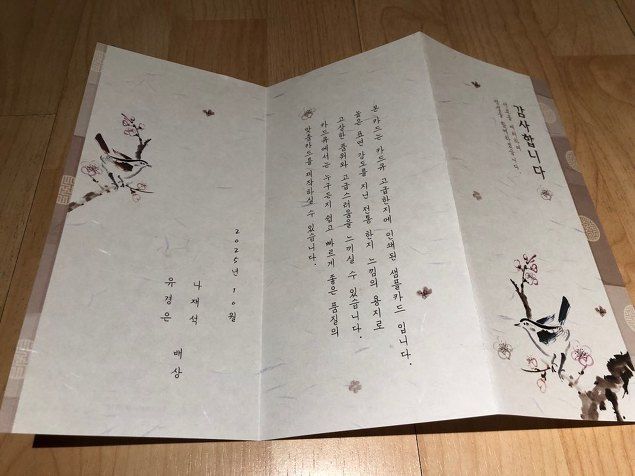 감사합니다
본 카드는 카드큐 고급한지에 인쇄된 샘플카드 입니다.
높은 표면 강도를 지닌 전통 한지 느낌의 용지로
고상한 품위와 고급스러움을 느끼실 수 있습니다.
카드큐에서는 누구든지 쉽고 빠르게 좋은 품질의
맞춤카드를 제작하실 수 있습니다.
2025년 10월
나재석
유경은
배상